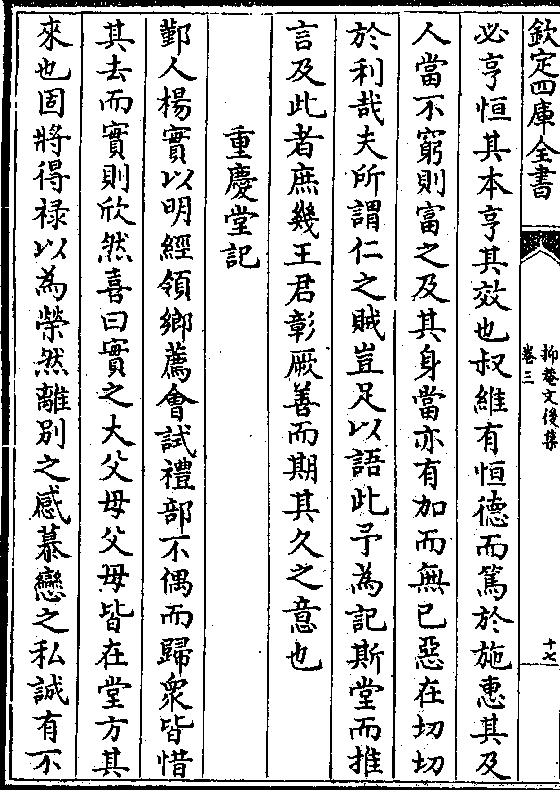 欽定四庫全書
抑菴文後集
卷三
十七
必亨恒其本亨其效也叔維有恒德而篤於施惠其及
人當不窮則富之及其身當亦有加而無已惡在切切
於利哉夫所謂仁之賊豈足以語此予為記斯堂而推
言及此者庶幾王君彰厥善而期其久之意也
重慶堂記
鄞人楊實以明經領鄉薦會試禮部不偶而歸衆皆惜
其去而實則欣然喜曰實之大父母父母皆在堂方其
來也固將得祿以為榮然離別之感慕戀之私誠有不